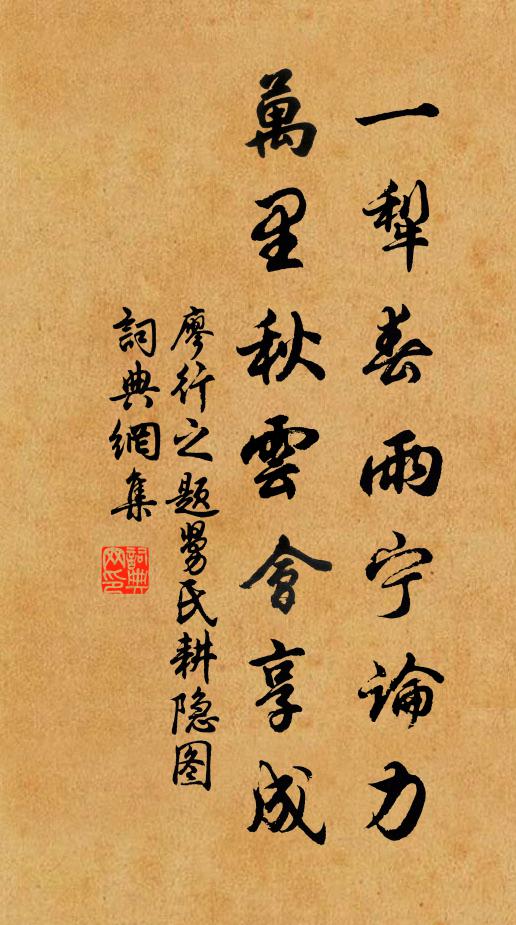 一犁春雨宁論力
萬里秋雲會享成
廖行之题曼民耕隐图
詞典網集
詞典網印